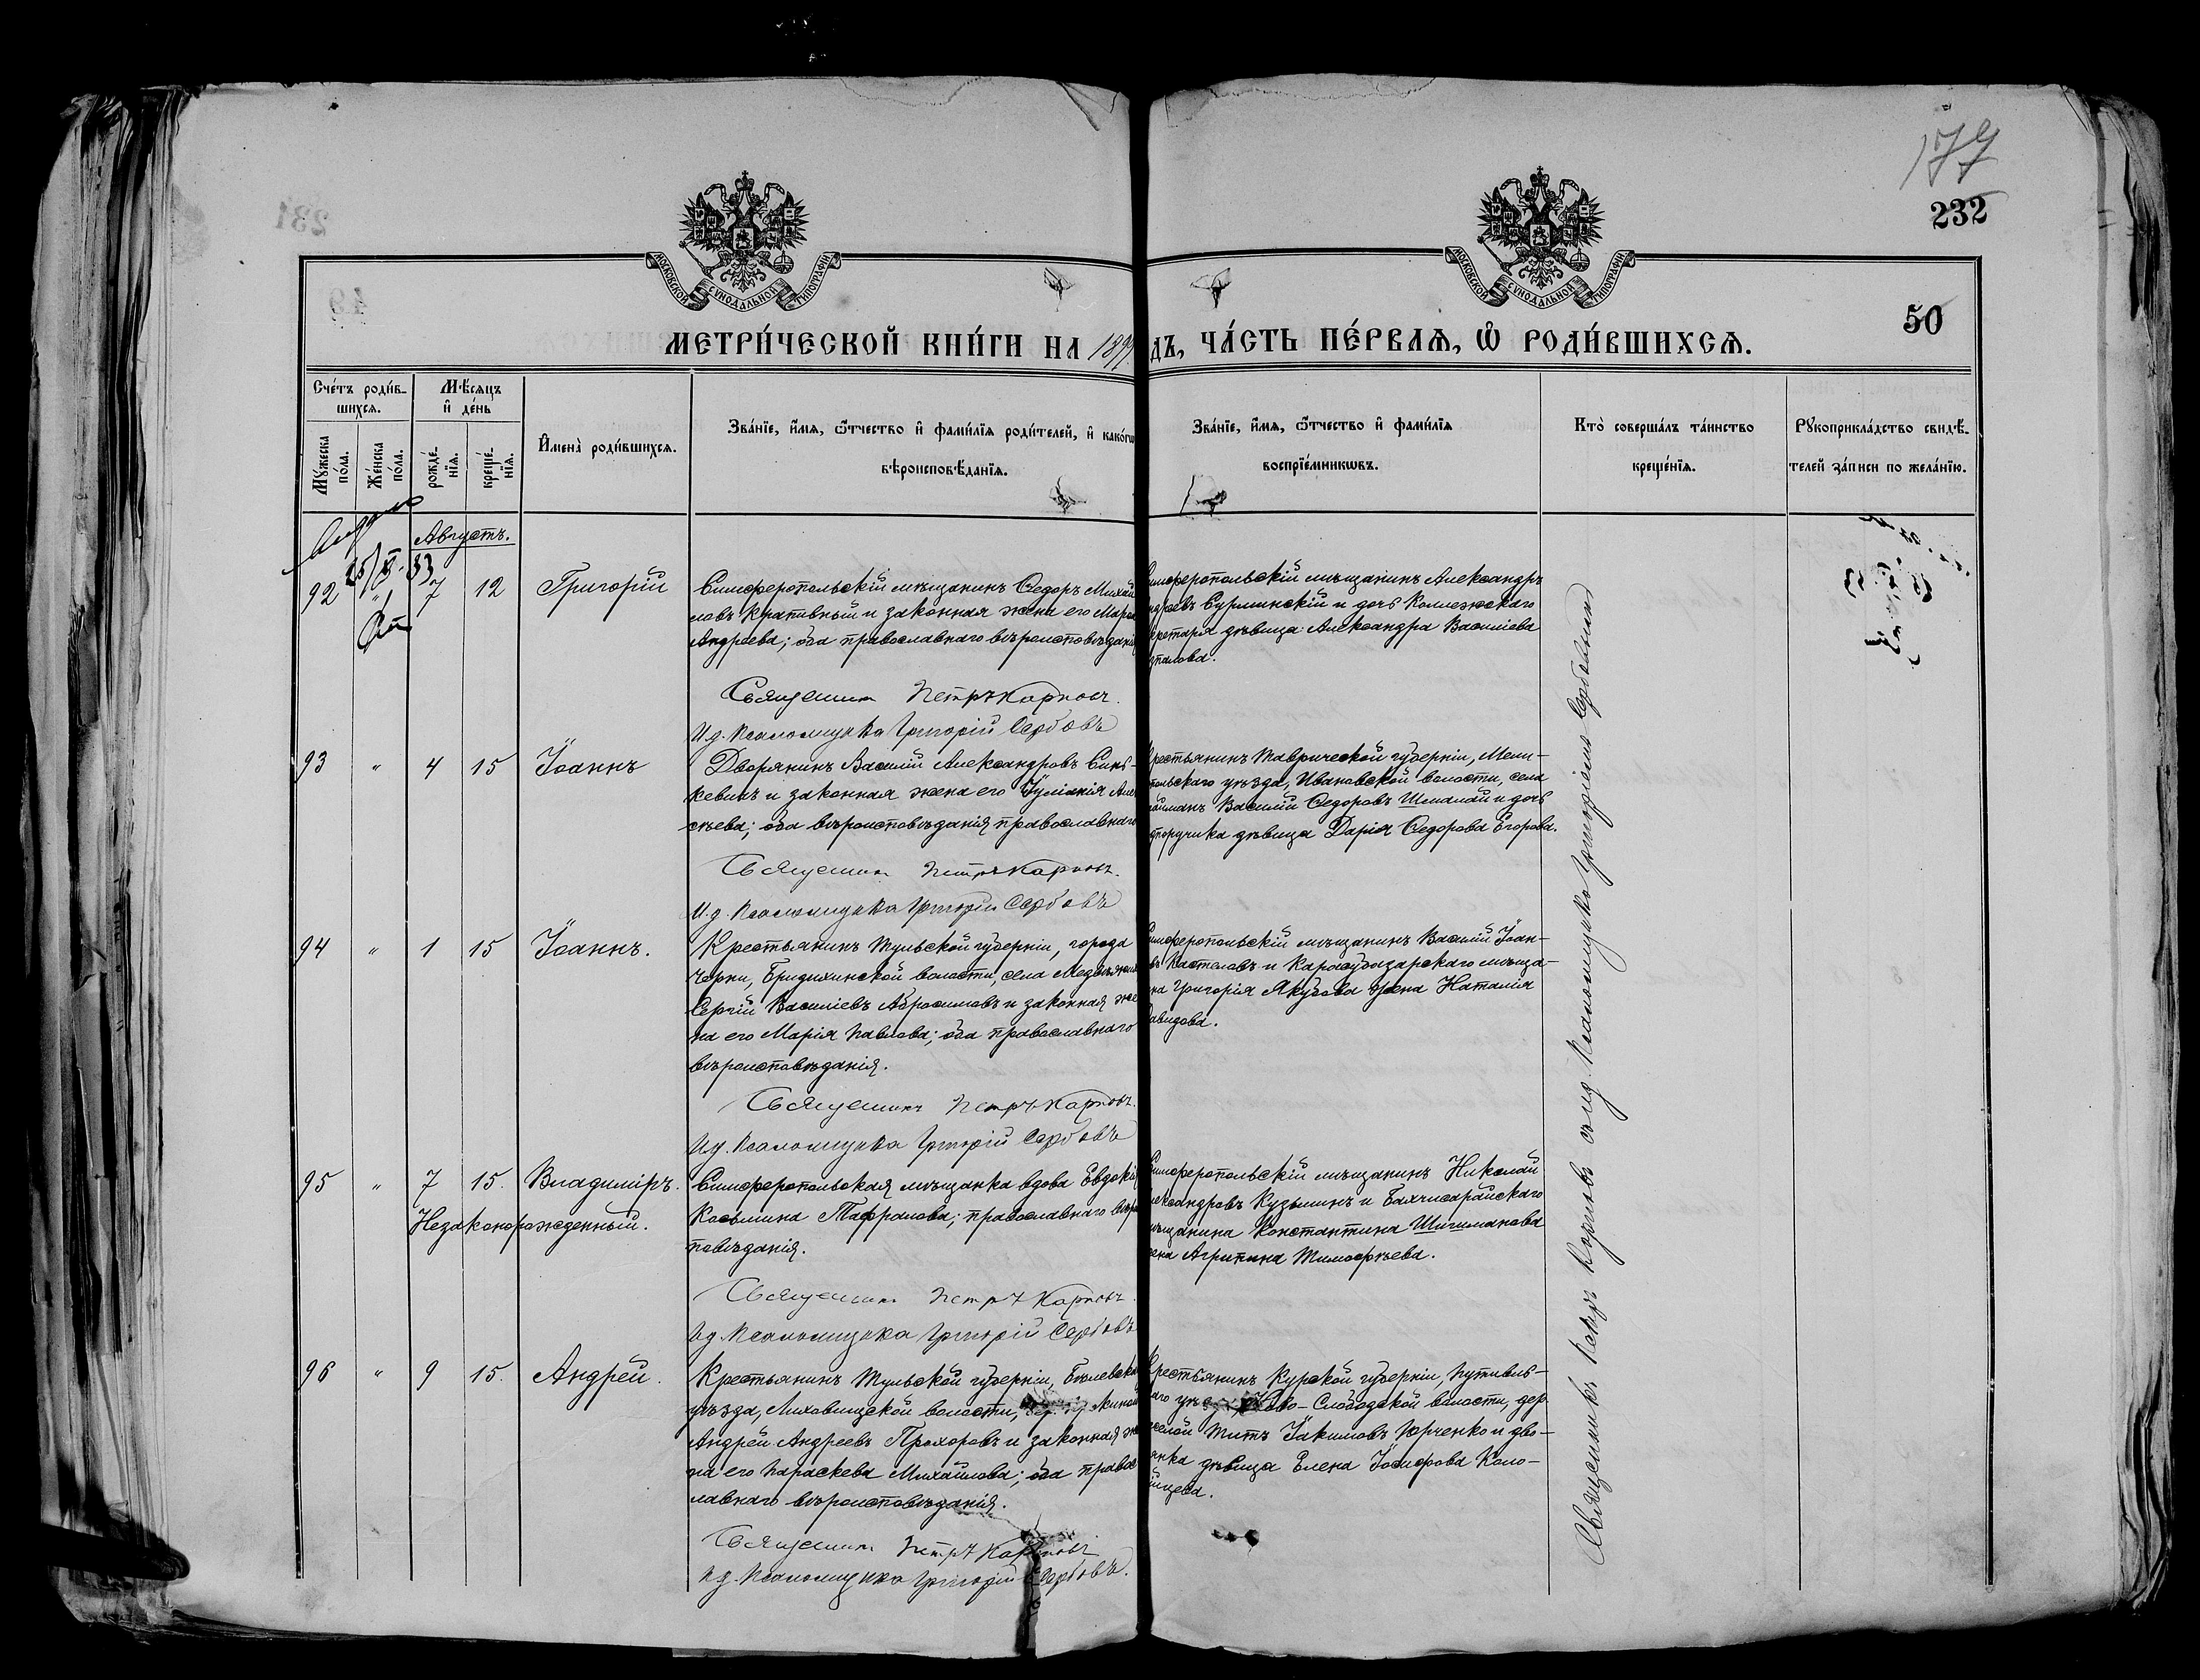 179
232
50
МОСКОВСКОЙ СУНОДАЛЬНОЙ ТИПОГРАФІИ
МОСКОВСКОЙ СУНОДАЛЬНОЙ ТИПОГРАФІИ
МЕТРИ́ЧЕСКОЙ КНИ́ГИ НА 189 ДЪ, ЧА́СТЬ ПЕ́РВАѦ, Ѡ҆ РОДИ́ВШИХСѦ.
Сче́тъ роди́в-
шихсѧ.
Мѣ́сѧцъ
и҆ де́нь
Мꙋ́жеска по́ла.
Же́нска по́ла.
рожде́-
нїѧ.
креще́-
нїѧ.
И҆мена̀ роди́вшихсѧ.
Зва́нїе, и҆́мѧ, ѻ҆́тчество и҆ фами́лїѧ роди́телей, и҆ како́гѡ
вѣроисповѣ́данїѧ.
Зва́нїе, и҆́мѧ, ѻ҆́тчество и҆ фами́лїѧ
воспрїе́мникѡвъ.
Кто̀ соверша́лъ та́инство
креще́нїѧ.
Рꙋкоприкла́дство свидѣ́-
телей за́писи по жела́нїю.
Августъ.
92 " 7 12 Григорій
Симферопольскій мѣщанинъ Ѳедоръ Михай
ловъ Крапивный и законная жена его Марѳа
Андреева; оба православнаго вѣроисповѣданія
Священникъ Петръ Карповъ.
И.д. Псаломщика Григорій Сербовъ
имферопольскій мѣщанинъ Александръ
ндреевъ Сурминскій и дочь Коллежскаго
кретаря дѣвица Александра Василіева
93 " 4 15 Іоаннъ
Дворянинъ Василій Александровъ Синь-
кевичъ и законная жена его Іуліанія Але
сѣева; оба вѣроисповѣданія православнаго
Священникъ Петръ Карповъ.
И.д. Псаломщика Григорій Сербовъ
рестьянинъ Таврической губерніи, Мели-
польскаго уѣзда, Ивановской волости, села
Василій Ѳедоровъ Шмалай и дочь
дпоручика дѣвица Дарія Ѳедорова Егорова.
94 " 1 15 Іоаннъ.
Крестьянинъ Тульской губерніи, города
Черни, Бридихинской волости, села
Сергій Василіевъ Абросимовъ и законная же
на его Марія Павлова; оба православнаго
вѣроисповѣданія.
Священникъ Петръ Карповъ.
И.д. Псаломщика Григорій Сербовъ
имферопольскій мѣщанинъ Василій Іоан-
въ Кастелавъ и Карасубазарскаго мѣща-
на Григорія Якубова жена Наталія
авидова.
95 " 7 15. Владиміръ.
Незаконорожденный.
Симферопольская мѣщанка вдова Евдокія
Косьмина Тафранова; православнаго вѣро
повѣданія.
Священникъ Петръ Карповъ.
И.д. Псаломщика Григорій Сербовъ
имферопольскій мѣщанинъ Николай
лександровъ Кузьминъ и Бахчисарайскаго
мѣщанина Константина Шишманова
ена Агрипина Тимоѳѣева.
96 " 9 15. Андрей.
Крестьянинъ Тульской губерніи, Бѣлевска
уѣзда, волости,
Андрей Андреевъ Прохоровъ и законная же
на его Параскева Михайлова; оба правос
лавнаго вѣроисповѣданія.
Священникъ Петръ Карповъ
И.д. Псаломщика Григорій Сербовъ.
рестьянинъ Курской губерніи, Путивль-
аго Ново-Слободской волости, дер.
Титъ Іакимовъ Юрченко и дво-
янка дѣвица Елена Іосифова Коло-
йцева.
Священникъ Петръ Карповъ съ и.д. Псаломщика Григоріемъ Сербовымъ